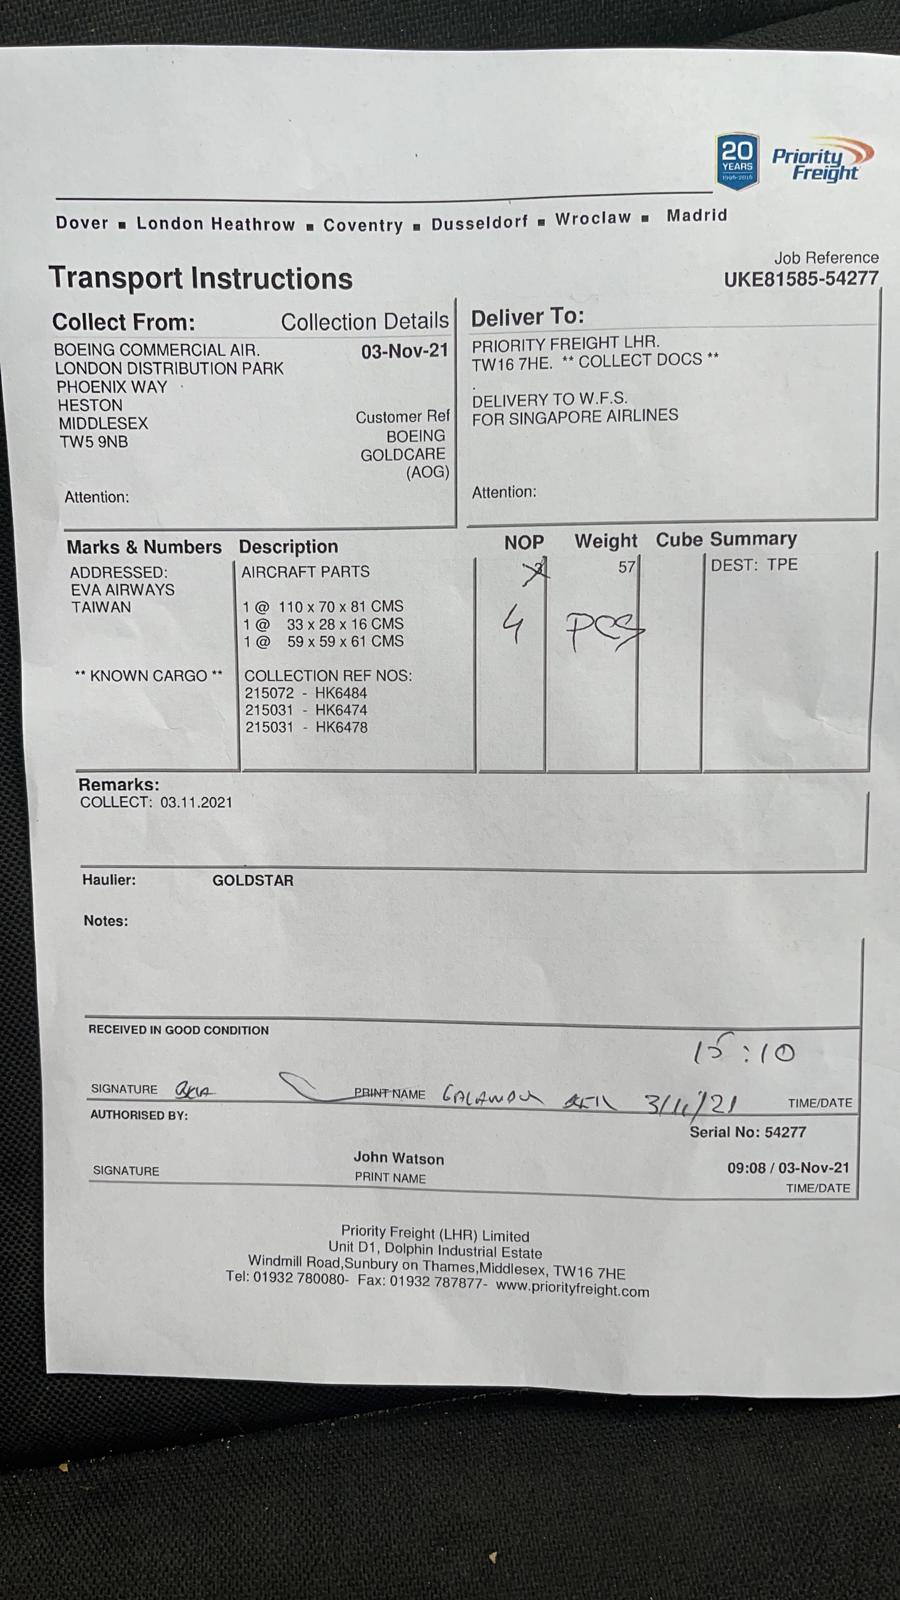 20
YEARS
1996-2016
Priority
Freight
Dover ■ London Heathrow ■ Coventry ■ Dusseldorf ■ Wroclaw ■ Madrid
Job Reference
Transport Instructions
UKE81585-54277
Collect From: Collection Details
Deliver To:
BOEING COMMERCIAL AIR. 03-Nov-21
LONDON DISTRIBUTION PARK
PHOENIX WAY
HESTON
MIDDLESEX
TW5 9NB
Customer Ref
BOEING
GOLDCARE
(AOG)
Attention:
PRIORITY FREIGHT LHR.
TW16 7HE. ** COLLECT DOCS **
.
DELIVERY TO W.F.S.
FOR SINGAPORE AIRLINES
Attention:
Marks & Numbers Description NOP Weight Cube Summary
ADDRESSED:
EVA AIRWAYS
TAIWAN
** KNOWN CARGO **
AIRCRAFT PARTS
1 @ 110 x 70 x 81 CMS
1 @ 33 x 28 x 16 CMS
1 @ 59 x 59 x 61 CMS
COLLECTION REF NOS:
215072 - HK6484
215031 - HK6474
215031 - HK6478
3
57
DEST: TPE
4 PCS
Remarks:
COLLECT: 03.11.2021
Haulier: GOLDSTAR
Notes:
RECEIVED IN GOOD CONDITION
15:10
SIGNATURE PRINT NAME 3/11/21 TIME/DATE
AUTHORISED BY:
Serial No: 54277
John Watson
09:08 / 03-Nov-21
SIGNATURE PRINT NAME TIME/DATE
Priority Freight (LHR) Limited
Unit D1, Dolphin Industrial Estate
Windmill Road,Sunbury on Thames,Middlesex, TW16 7HE
Tel: 01932 780080- Fax: 01932 787877- www.priorityfreight.com